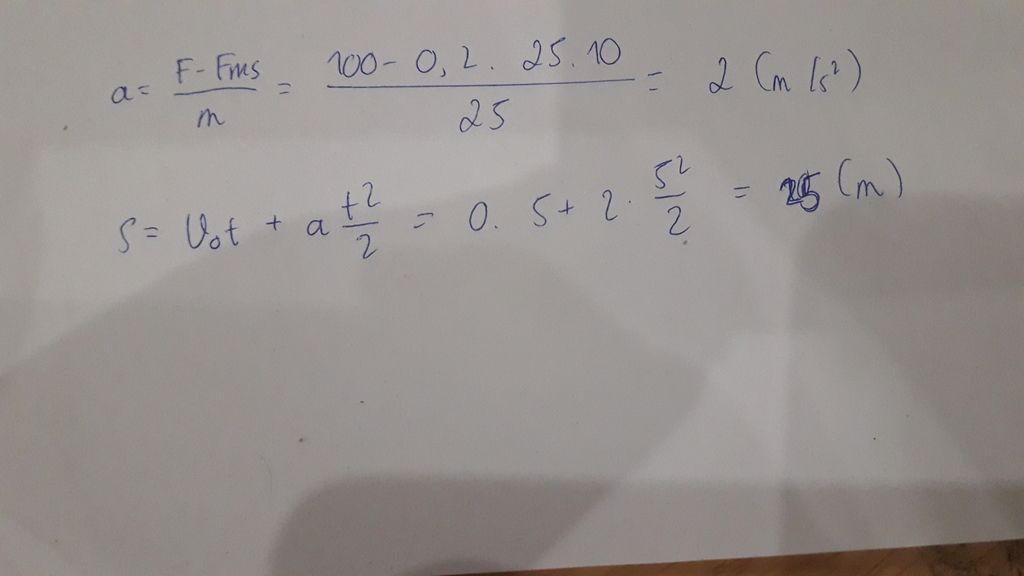 a = \frac{F - Fms}{m} = \frac{100 - 0,2 . 25 . 10}{25} = 2 (m/s²)
S = V₀t + a \frac{t²}{2} = 0 . 5 + 2 . \frac{5²}{2} = 25 (m)